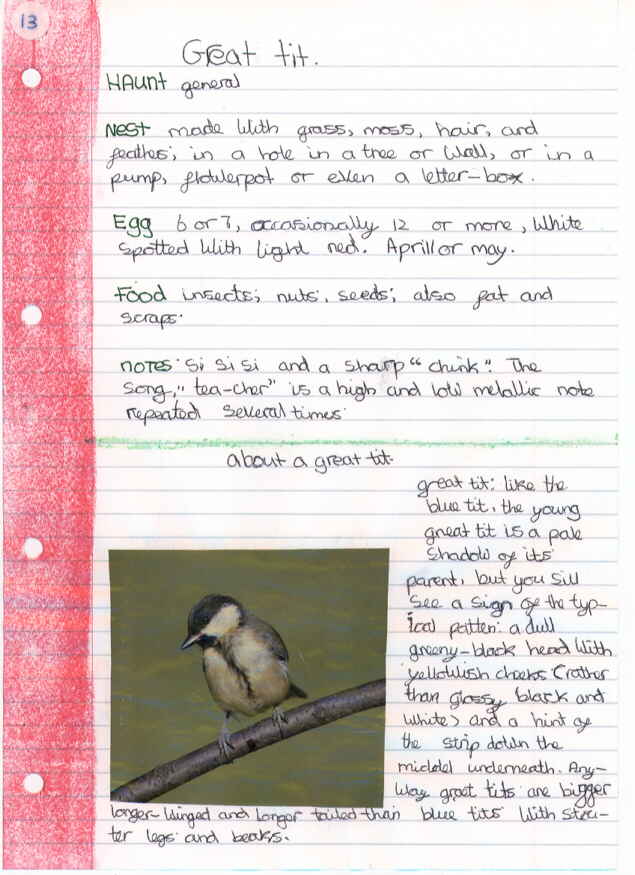 13
Great tit.
HAunt general
Nest made with grass, moss, hair, and
feather, in a hole in a tree or wall, or in a
pump, flowerpot or even a letter-box.
Egg 6 or 7, occasionally 12 or more, white
spotted with light red. Aprill or may.
Food insects, nuts, seeds, also fat and
scraps.
notes Si Si Si and a sharp "chink". The
song, "tea-cher" is a high and low metallic note
repeated several times
about a great tit.
great tit: like the
blue tit, the young
great tit is a pale
shadow of its
parent, but you sill
see a sign of the typ-
ical patten: a dull
greeny-black head with
yellowish cheeks (rather
than glossy black and
white) and a hint of
the strip down the
middel underneath. Any-
way great tits are bigger
longer-winged and longer tailed than blue tits with
ter legs and beaks.